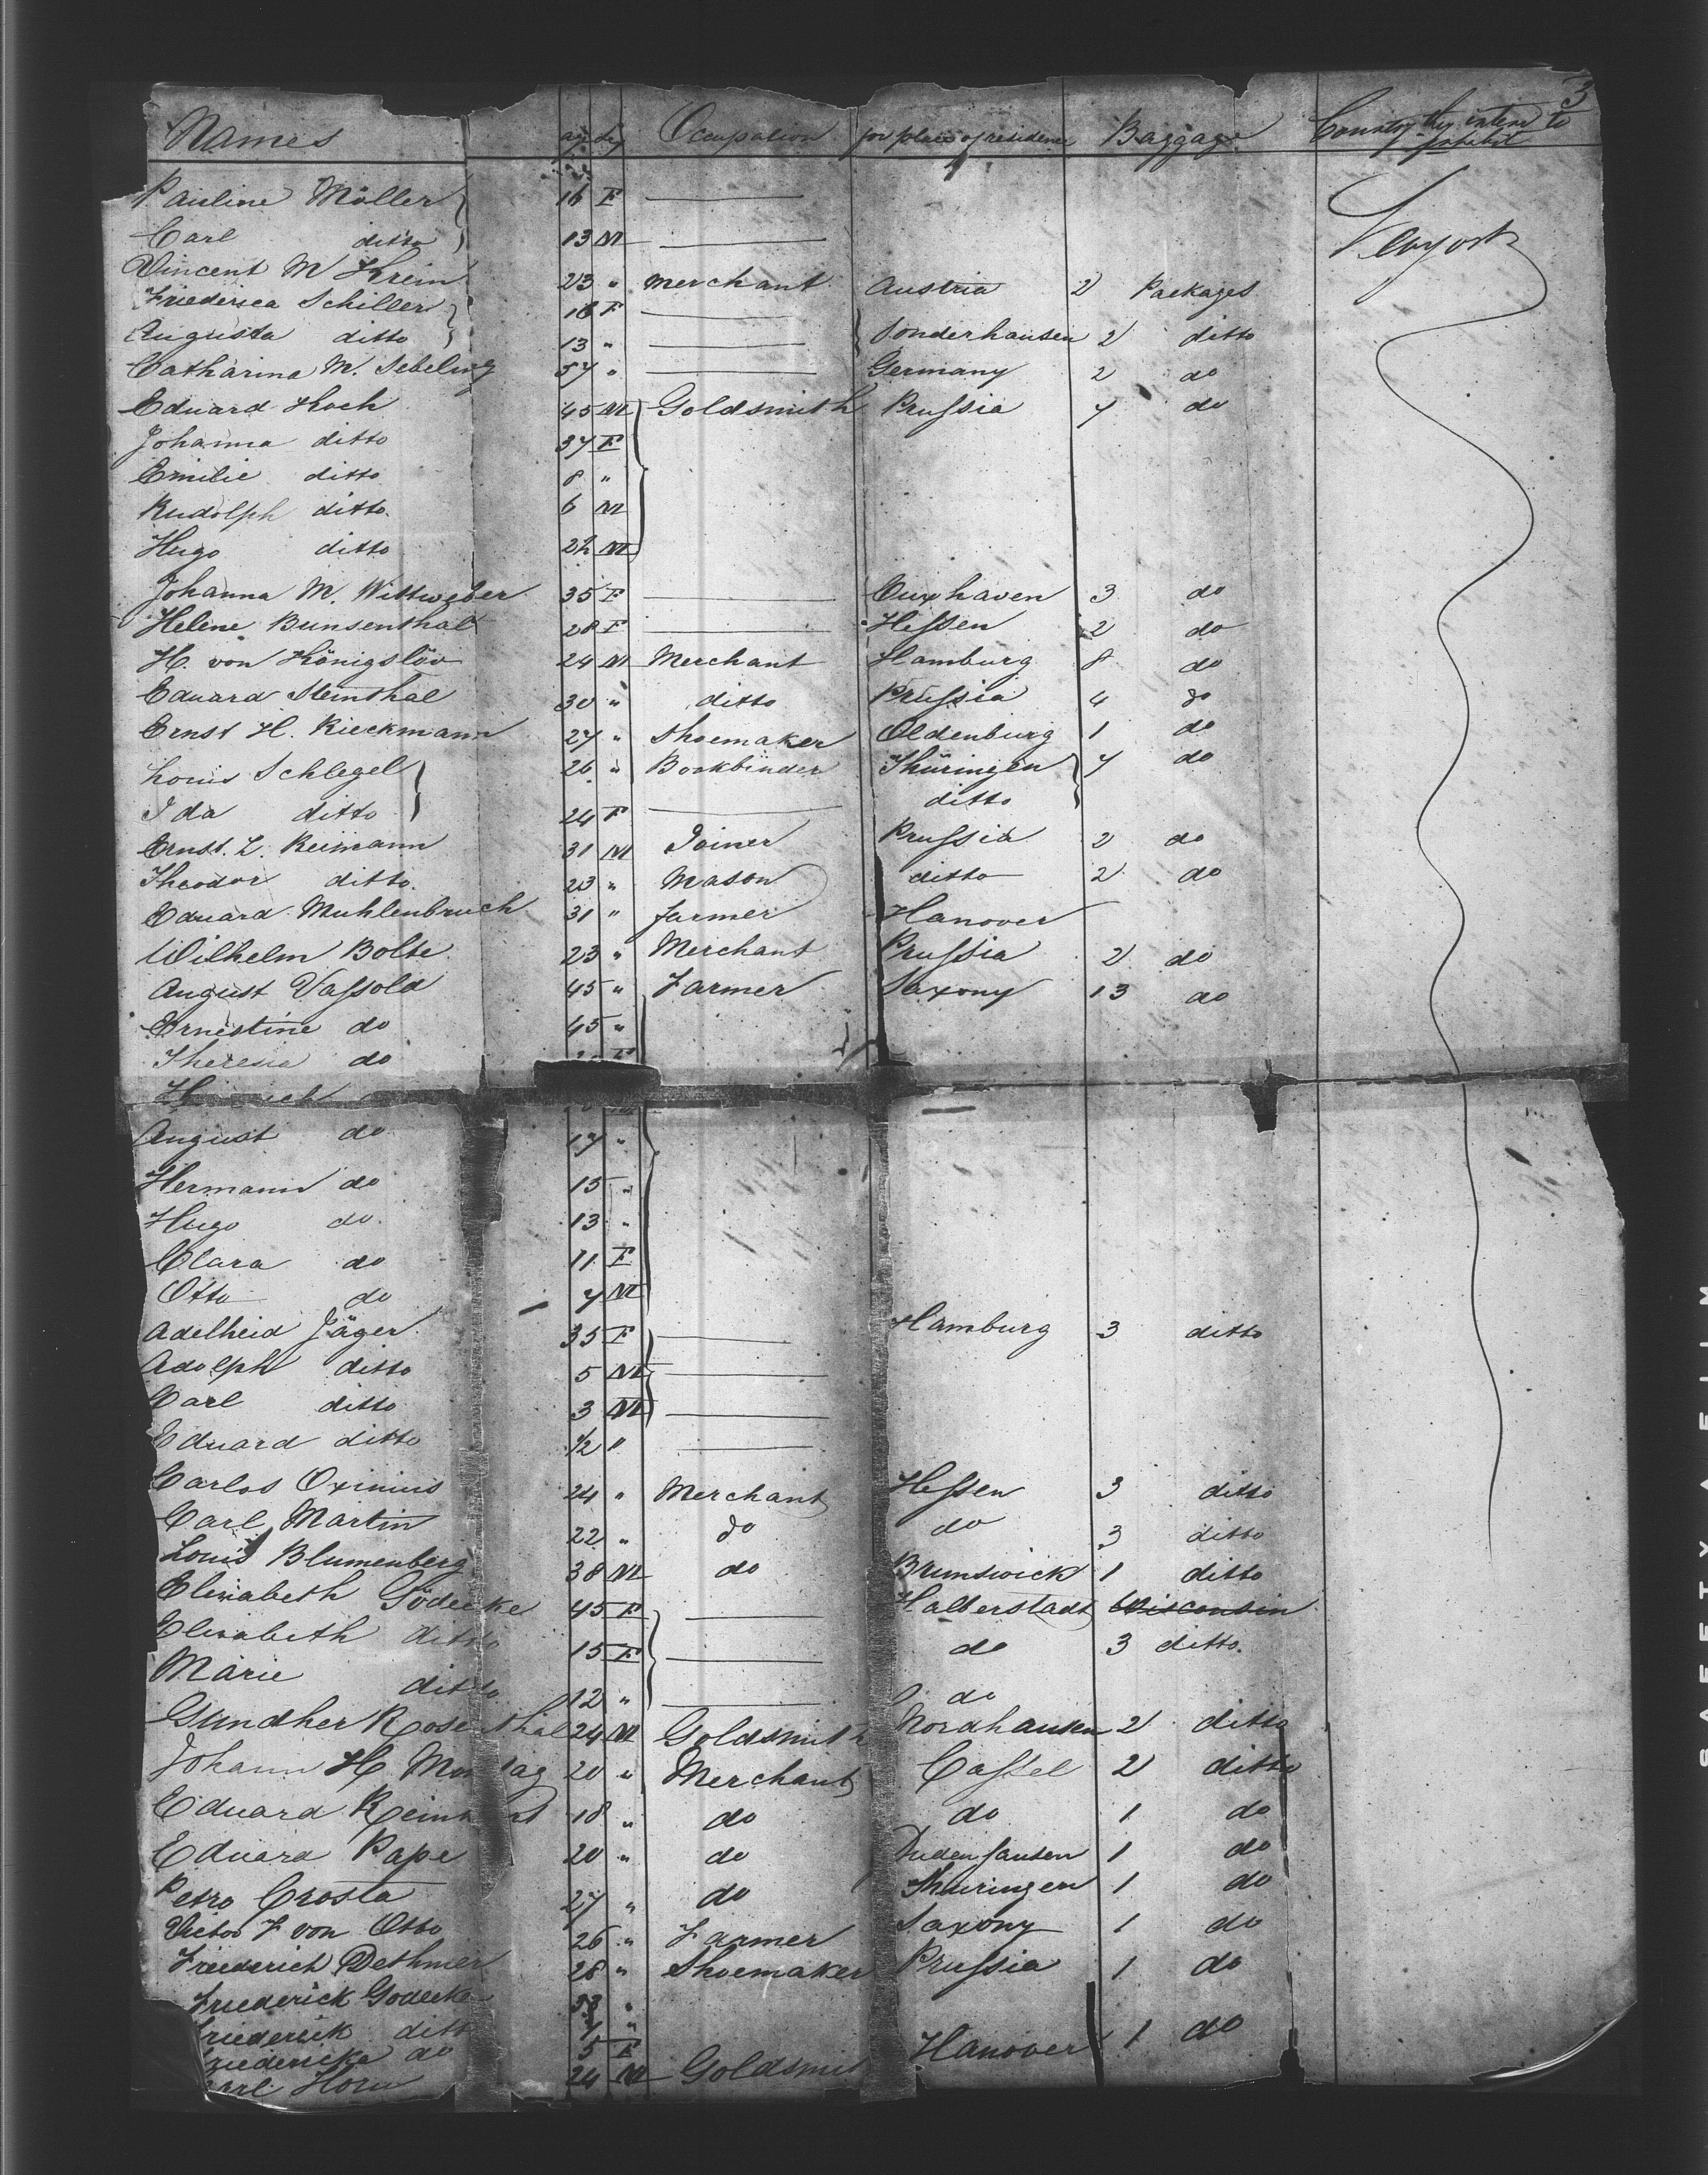 3
Names age Sex Occupation for place of residence Baggage Country they intend to inhabit
Pauline Möller 16 F
Carl ditto 13 M
Newyork
Vincent M Krein 23 " Merchant Austria 2 Packages
Friederica Schiller 16 F
Augusta ditto 13 " Sonderhausen 2 ditto
Catharina M. Sebeling 57 " Germany 2 do
Eduard Koch 45 M Goldsmith Prussia 7 do
Johanna ditto 37 F
Emilie ditto 8 "
Rudolph ditto 6 M
Hugo ditto M
Johanna M. Wittweber 35 F Cuxhaven 3 do
Helene Bunsenthal 28 F Hessen 2 do
H. von Königslöw 24 M Merchant Hamburg 8 do
Eduard Steinthal 30 " ditto Prussia 4 do
Ernst H. Rieckmann 27 " Shoemaker Oldenburg 1 do
Louis Schlegel 26 " Bookbinder Thüringen 7 do
Ida ditto 24 F ditto
Ernst. L. Reimann 31 M Joiner Prussia 2 do
Theodor ditto. 23 " Mason ditto 2 do
Eduard Muhlenbruch 31 " farmer Hanover
Wilhelm Bolte 23 " Merchant Prussia 2 do
August Vassold 45 " Farmer Saxony 13 do
Ernestine do 45 "
Theresia do F
August do 17 "
Hermann do 15 "
Hugo do 13 "
Clara do 11 F
Otto do 7 M
Adelheid Jäger 35 F Hamburg 3 ditto
Adolph ditto 5 M
Carl ditto 3 M
Eduard ditto ½ "
Carlos Oxinius 24 " Merchant Hessen 3 ditto
Carl Martin 22 " do do 3 ditto
Louis Blumenberg 38 M do Brunswick 1 ditto
Elisabeth Gödecke 45 F Halberstadt Wisconsin
Elisabeth ditto 15 F do 3 ditto.
Marie ditto 12 " do
Gundher Rosenthal 24 M Goldsmith Nordhausen 2 ditto
Johann H. 20 " Merchant Cassel 2 ditto
Eduard 18 " do do 1 do
Eduard Pape 20 " do 1 do
Petro Crosta 27 " do Thuringen 1 do
Victor F von Otto 26 " Farmer Saxony 1 do
Friederich Dethmer 28 " Shoemaker Prussia 1 do
Friederick Godecke 33 "
Friederick ditto "
Friedericke do 5 F
Carl Horn 24 M Goldsmith Hanover 1 do